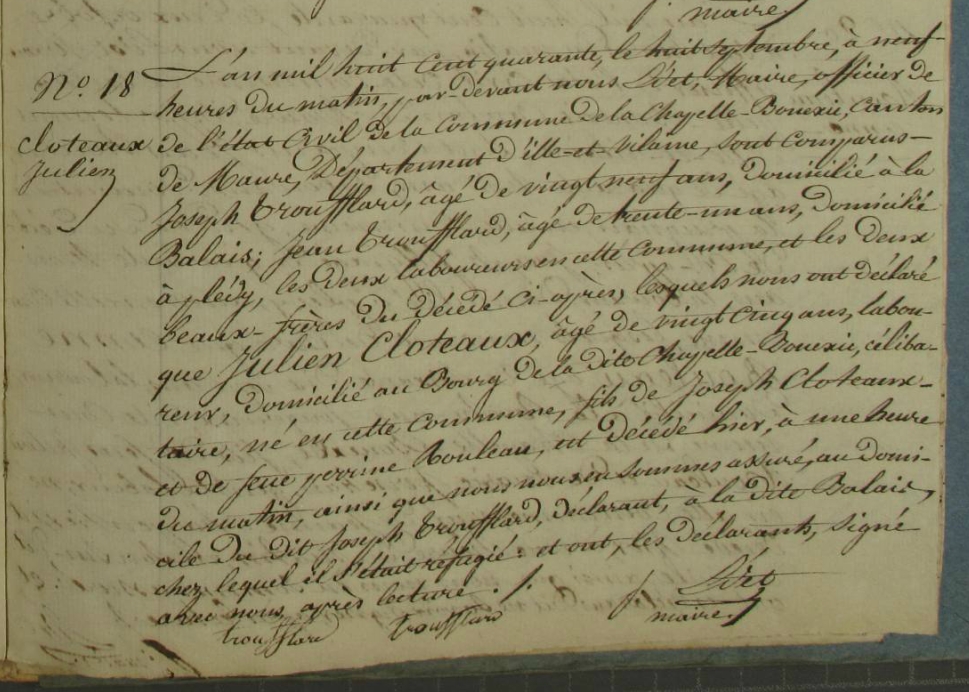 maire
N.o 18
Cloteaux
Julien
L'an mil huit cent quarante, le huit septembre, à neuf
heures du matin, par-devant nous Lizé, Maire, officier de
de l'état civil de la commune de la Chapelle-Bouexic, canton
de Maure, Département d'ille-et-vilaine, sont comparus-
Joseph Troufflard, âgé de vingt neuf ans, domicilié à la
Balais; Jean Troufflard, âgé de trente-un ans, domicilié
à plédy, les deux laboureurs en cette commune, et les deux
beaux-frères du décédé ci-après, lesquels nous ont déclaré
que Julien Cloteaux, âgé de vingt cinq ans, labou-
reur, domicilié au Bourg de la dite Chapelle-Bouexic, céliba-
taire, né en cette commune, fils de Joseph Cloteaux-
et de feue perrine Rouleau, est décédé hier, à une heure
du matin, ainsi que nous nous en sommes assuré, au domi-
cile du dit Joseph Troufflard, déclarant, à la dite Balais,
chez lequel il s'était réfugié: et ont, les déclarants, signé
avec nous, après lecture ./.
troufflard troufflard
maire